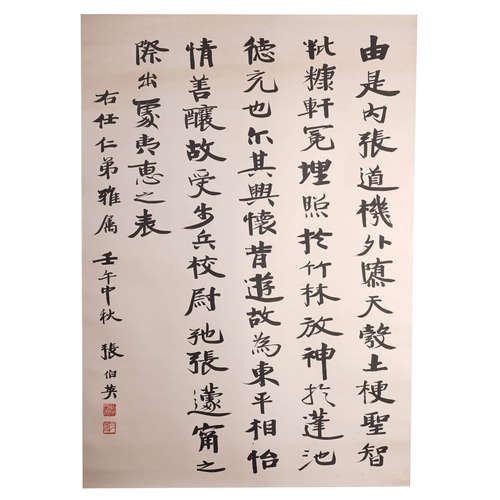 由是内張道機外隳天㝅土梗聖智
粃糠軒冕埋照於竹林放神於蓬池
德充也尔其興懷昔遊故為東平相怡
情善釀故受步兵校尉弛張蘧甯之
際出處夷惠之表
右任仁弟雅属 壬午中秋 張伯英